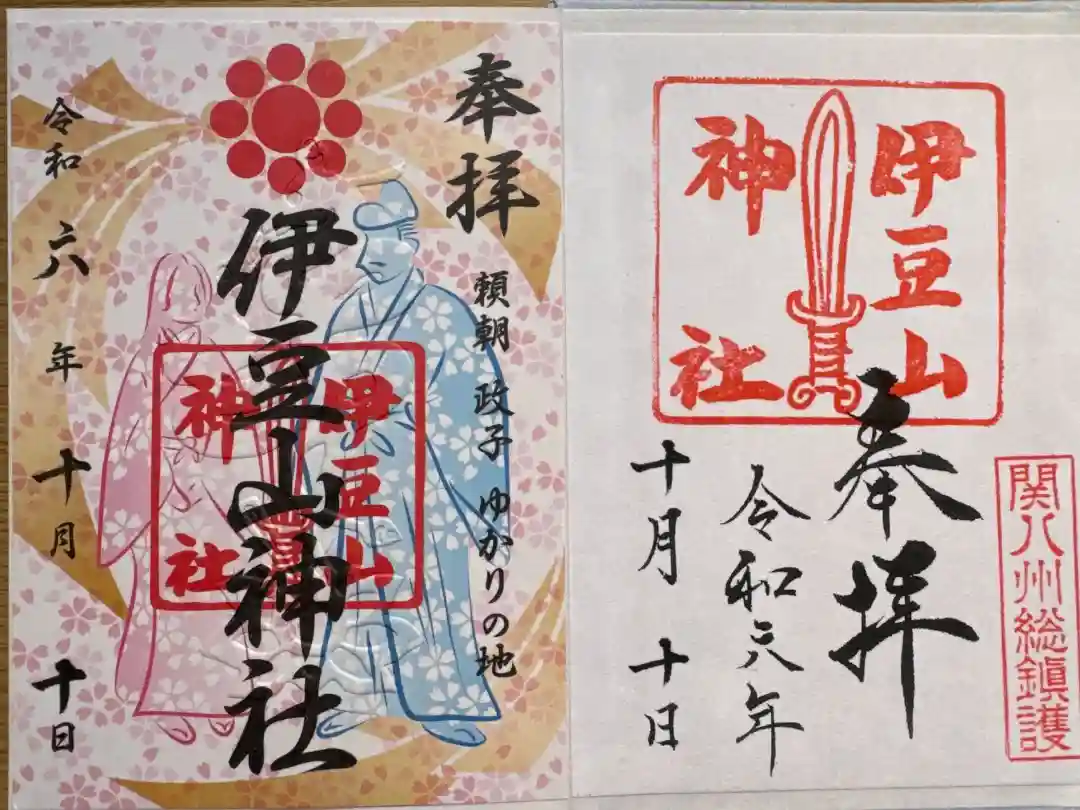 奉拝
頼朝 政子 ゆかりの地
伊豆山神社
伊豆山
神社
令和 六 年 十月 十日
伊豆山
神社
関八州総鎮護
奉拝
令和六年
十月 十日